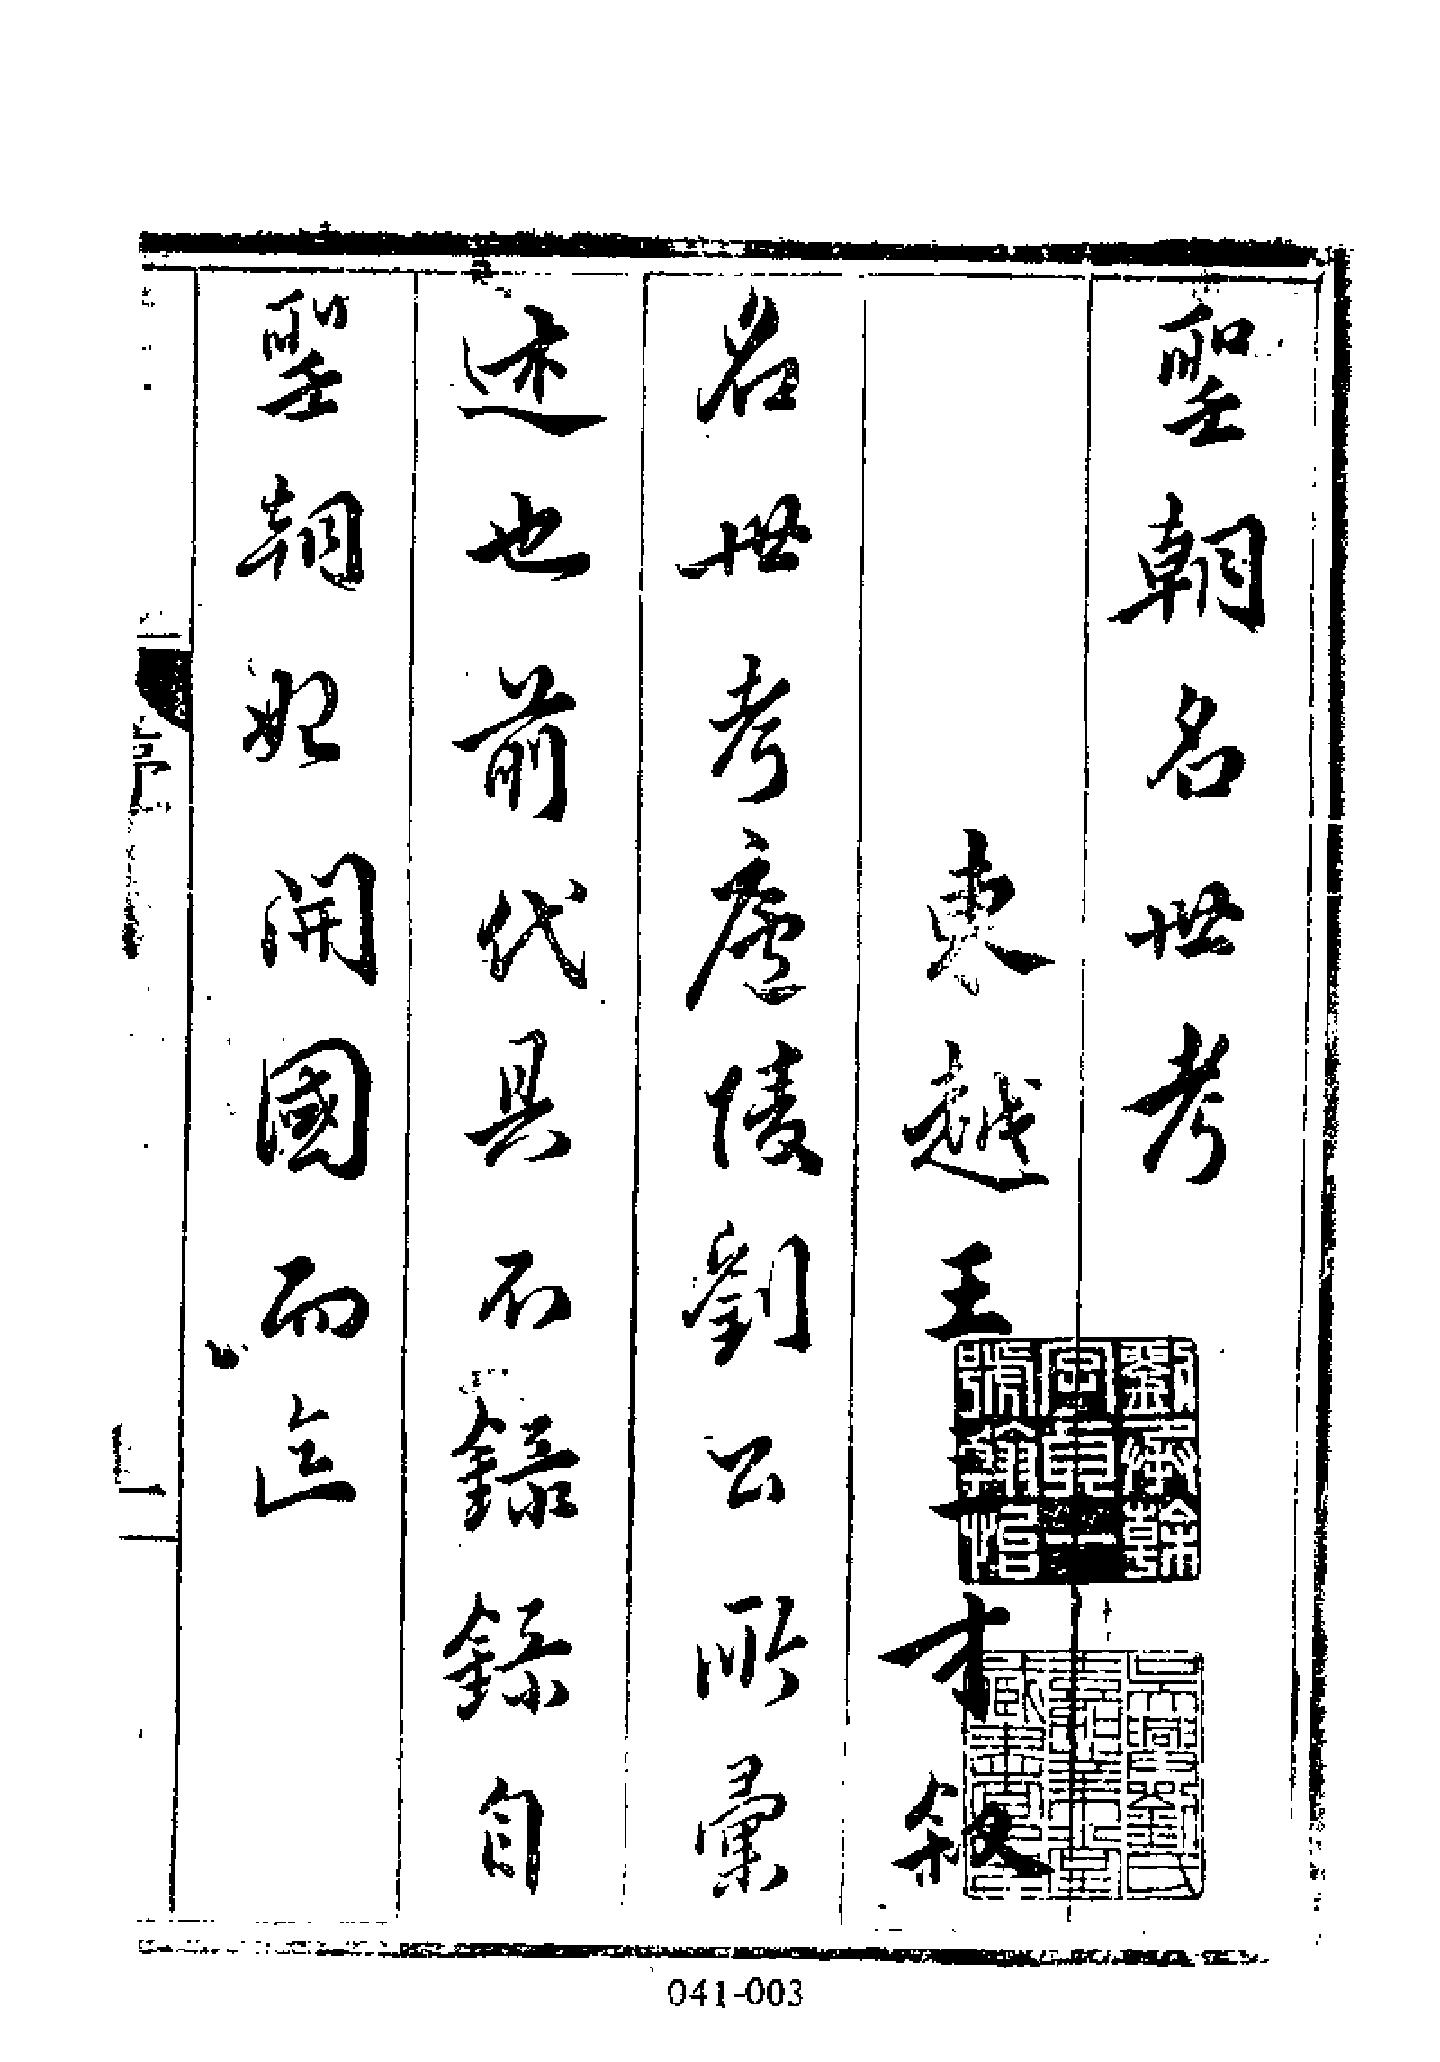 聖朝名世考
東越王三才敘
名世考廬陵劉公所彙
述也前代具不錄錄自
聖朝始開國而迄
劉承幹字貞一號翰怡
吳興劉氏嘉業堂藏書記
041-003